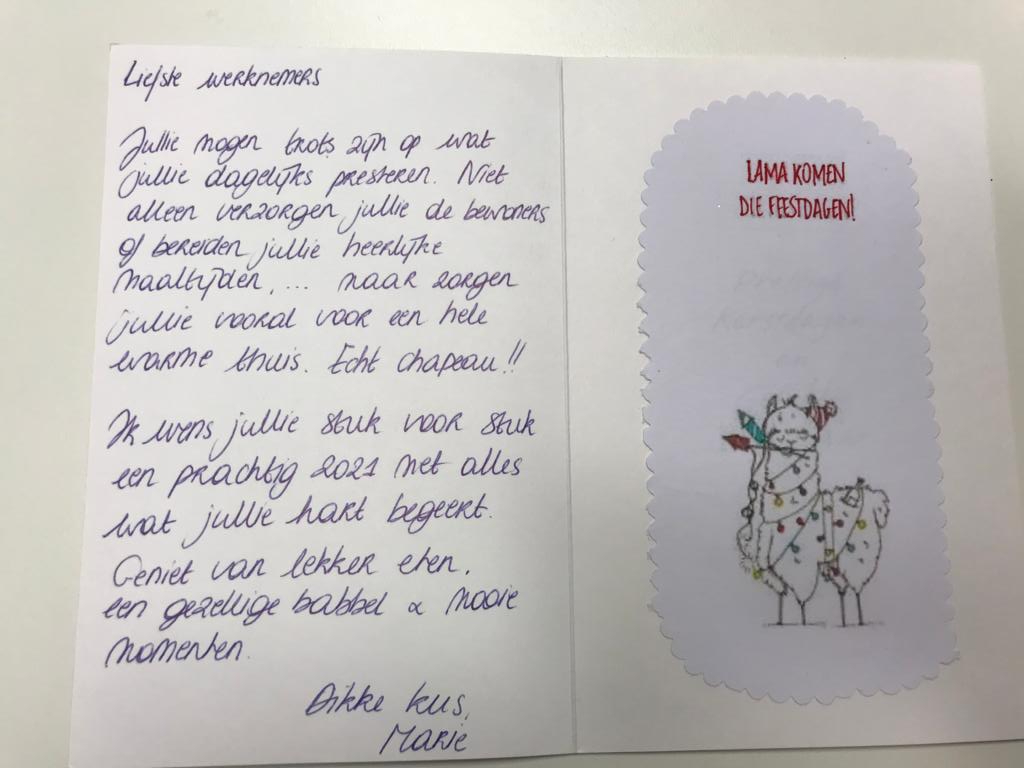 Liefste werknemers
Jullie mogen trots zijn op wat
jullie dagelijks presteren. Niet
alleen verzorgen jullie de bewoners
of bereiden jullie heerlijke
maaltijden, ... maar zorgen
jullie vooral voor een hele
warme thuis. Echt chapeau!!
Ik wens jullie stuk voor stuk
een prachtig 2021 met alles
wat jullie hart begeert.
Geniet van lekker eten,
een gezellige babbel & mooie
momenten.
Dikke kus,
Marie
LAMA KOMEN
DIE FEESTDAGEN!
Prettige
Kerstdagen
en